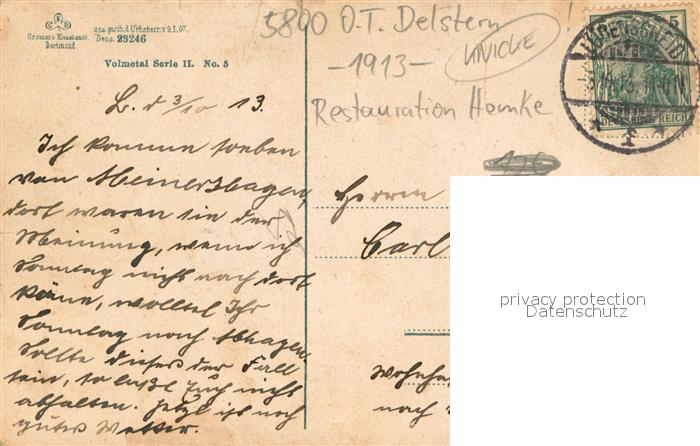 Cramers Kunstanst.
Dortmund
ges. gesch. d. Urheberr. v. 9.1.07.
Dess. 23246
Volmetal Serie II. No. 5
5800 O.T. Delstern !
UNICKE
-1913-
Restauration Hamke
5
DEUTSCHES REICH
L. d 3/10 13.
Ich komme soeben
von Meinerzhagen,
dort waren sie der
Meinung, wenn ich
Sonntag nicht nach dort
käme, wolltet Ihr
Sonntag nach Mhagen.
Sollte dieses der Fall
sein, so laßt Euch nicht
abhalten. Jetzt ist noch
gutes Wetter.
Herrn
Carl
nach
privacy protection
Datenschutz